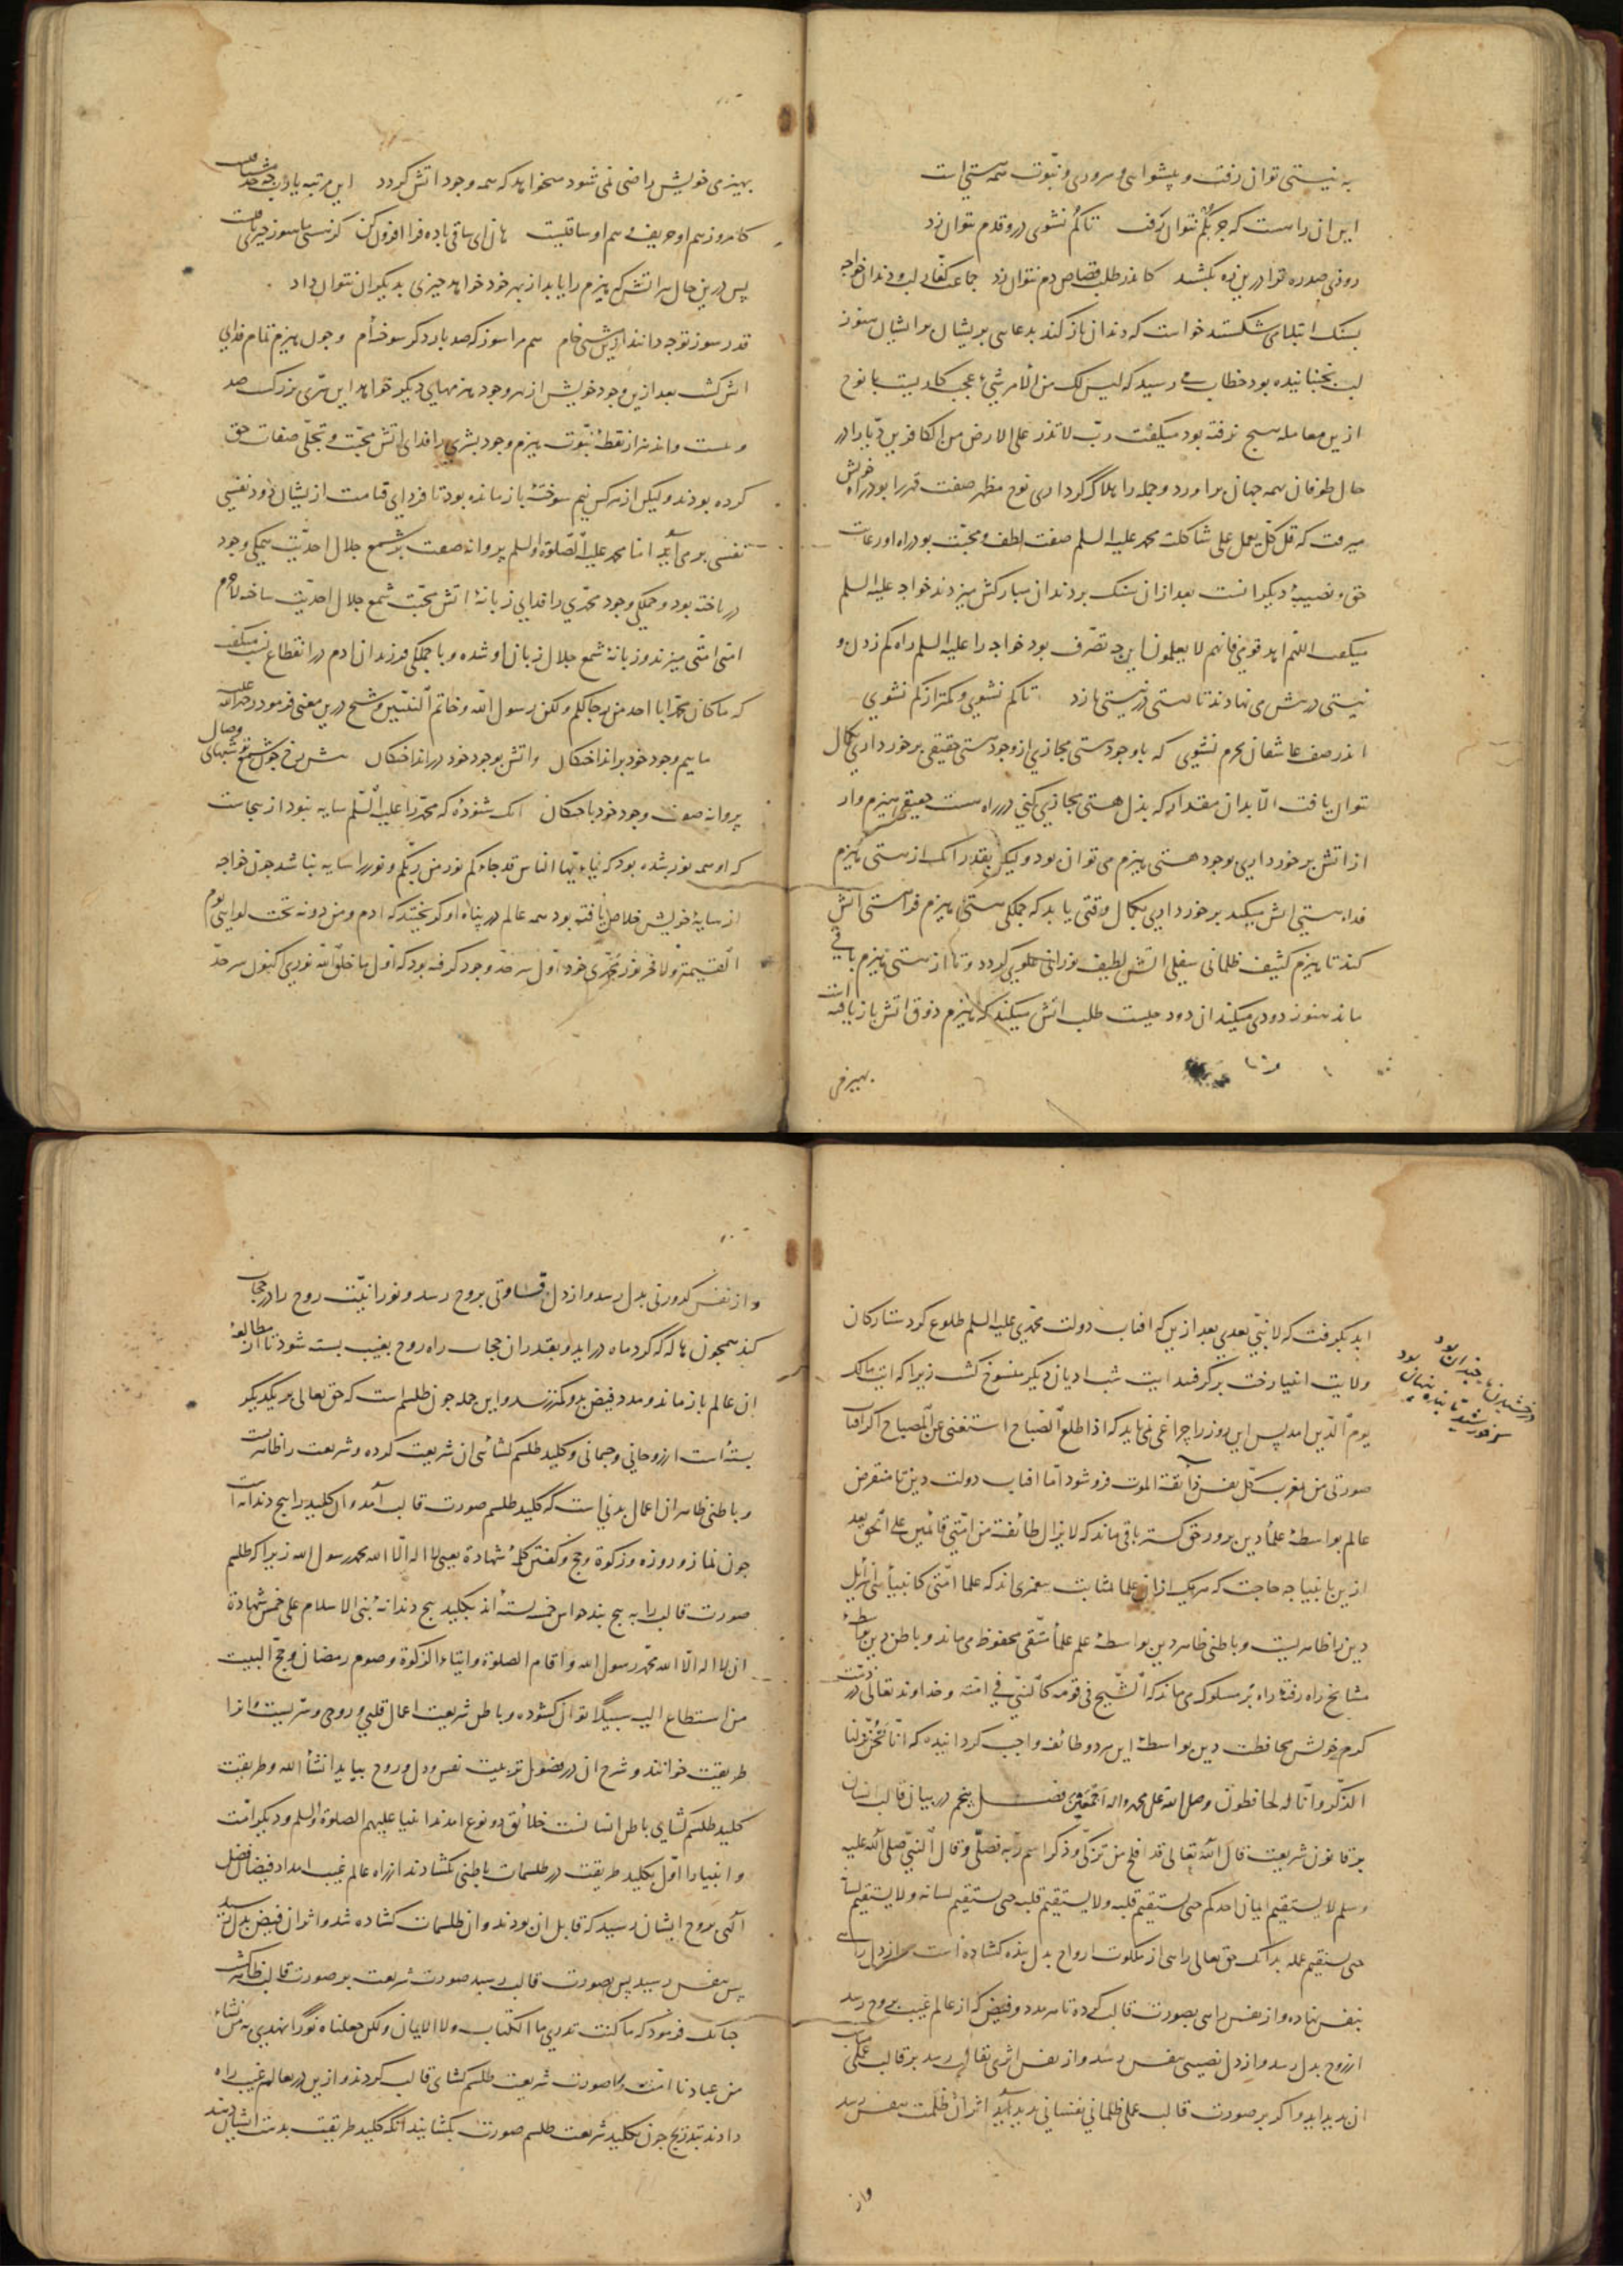 به نیستی توان رفت و پیشوایی و سروری و نبوت همه نیستی است
این آن راهست که جز بکم نتوان زد تا کم نشوی درو قدم نتوان زد
روزی صد ره ترا درین ره بکشند کاندر طلب قصاص دم نتوان زد جماعت کفار لب و دندان خواجه
بسنک ابتلا می شکستند خواست که دندان باز کند بدعایی بریشان و ایشان هنوز
لب نجنبانیده بود خطاب می رسید که لیس لک من الامر شیء عجب کاریست با نوح
ازین معامله هیچ نرفته بود میکفت رب لا تذر علی الارض من الکافرین دیارا در
حال طوفان همه جهان برآورد و جمله را هلاک کرد آری نوح مظهر صفت قهر بود در راه خویش
میرفت که قل کل یعمل علی شاکلته محمد علیه السلم صفت لطف و محبت بود در راه او رعایت
حق و نصیبه دیگرانست بعد ازان سنک بر دندان مبارکش میزدند خواجه علیه السلم
میکفت اللهم اهد قومی فانهم لا یعلمون این چه تصرف بود خواجه را علیه السلم راه کم زدن و
نیستی در پیش می نهادند تا هستی در نیستی بازد تا کم نشوی و کمتر از کم نشوی
اندر صف عاشقان محرم نشوی که با وجود هستی مجازی از وجود هستی حقیقی برخورداری بکمال
نتوان یافت الا بدان مقدار که بذل هستی مجازی کنی در راه هستی حقیقی هیزم وار
از آتش برخورداری بوجود هستی هیزم می توان بود ولیکن بقدر آنک از هستی هیزم
فداء هستی آتش میکند برخورداری بکمال وقتی یابد که جملکی هستی هیزم فداء هستی آتش
کند تا هیزم کثیف ظلمانی سفلی آتش لطیف نورانی علوی کردد و تا از هستی هیزم باقی
ماند هنوز دودی میکند آن دود چیست طلب آتش میکند که هیزم ذوق آتش باز یافته است
بهیزمی
بهیزمی خویش راضی نمی شود میخواهد که همه وجود آتش کردد این مرتبه یاد
کامروز هم او حریف و هم او ساقیست هان ای ساقی باده فرا افزون کن کز هستی ما هنوز چیزی باقیست
پس درین حال هر آتش که هیزم را یابد از بهر خود خواهد چیزی بدیکران نتوان داد
قدر سوز تو چه دانند ازین مشتی خام هم مرا سوز که صد بار دکر سوخته ام و چون هیزم تمام فدای
آتش کشت بعد ازین وجود خویش از بهر وجود هیزمهای دیکر خواهد این سری بزرکست
و هست و اند هزار نقطه نبوت هیزم وجود بشری را فدای آتش محبت و تجلی صفات حق
کرده بودند ولیکن از هر کس نیم سوخته باز مانده بود تا فردای قیامت ازیشان دود نفسی
نفسی بر می آید اما محمد علیه الصلوة والسلم پروانه صفت بر شمع جلال احدیت همکی وجود
در باخته بود و جملکی وجود محمدی را فدای زبانه آتش محبت شمع جلال احدیت ساخته لاجرم
امتی امتی میزند و زبانه شمع جلال زبان او شده و با جملکی فرزندان آدم در انقطاع نسب میکفت
که ما کان محمد ابا احد من رجالکم ولکن رسول الله و خاتم النبیین و شیخ درین معنی فرمود رحمة الله علیه
ماییم وجود خود برانداختکان و آتش بوجود خود درانداختکان پیش رخ چون شمع تو شبهای وصال
پروانه صفت وجود خود باختکان آنک شنوده که محمد را علیه السلم سایه نبود ازینجاست
که او همه نور شده بود که یا ایها الناس قد جاءکم نور من ربکم و نور را سایه نباشد چون خواجه
از سایه خویش خلاص یافته بود همه عالم در پناه او کریختند که آدم و من دونه تحت لوایی یوم
القیمة ولا فخر نور محمدی خود اول سر حد وجود کرفته بود که اول ما خلق الله نوری اکنون سر حد
ابد بکرفت که لا نبی بعدی بعد ازین که آفتاب دولت محمدی علیه السلم طلوع کرد ستارکان
ولایت انبیا رخت بر کرفتند آیت شب ادیان دیکر منسوخ کشت زیرا که آیت مالک
یوم الدین آمد پس این روز را چراغی نمی باید که اذا طلع الصباح استغنی عن المصباح اکر آفتاب
صورتی من مغرب کل نفس ذائقة الموت فرو شود اما آفتاب دولت دین تا منقرض
عالم بواسطه علماء دین پرور حق کستر باقی ماند که لا یزال طائفة من امتی قائمین علی الحق بعد
ازین بانبیا چه حاجت که هر یک ازان علما بمثابت پیغمبری اند که علماء امتی کانبیاء بنی اسرائیل
دین را ظاهریست و باطنی ظاهر دین بواسطه علم علماء متقی محفوظ می ماند و باطن دین بواسطه
مشایخ راه رفته راه بر مسلوک می ماند که الشیخ فی قومه کالنبی فی امته و خداوند تعالی در ذمت
کرم خویش محافظت دین بواسطه این هر دو طائفه واجب کردانیده که انا نحن نزلنا
الذکر وانا له لحافظون وصلی الله علی محمد وآله اجمعین فصل پنجم در بیان قالب انسان
بر قانون شریعت قال الله تعالی قد افلح من تزکی وذکر اسم ربه فصلی وقال النبی صلی الله علیه
وسلم لا یستقیم ایمان احدکم حتی یستقیم قلبه ولا یستقیم قلبه حتی یستقیم لسانه ولا یستقیم لسانه
حتی یستقیم عمله بدانک حق تعالی راهی از ملکوت ارواح بدل بنده کشاده است و از دل راهی
بنفس نهاده و از نفس راهی بصورت قالب کرده تا هر مدد و فیض که از عالم غیب بروح رسد
از روح بدل رسد و از دل نصیبی بنفس رسد و از نفس اثری بقالب رسد بر قالب عملی مناسب
آن پدید آید و اکر بر صورت قالب عملی ظلمانی نفسانی پدید آید اثر آن ظلمت بنفس رسد
واز
درخشیدن ما چندان بود
تابنده پنهان بود
خورشید
و از نفس کدورتی بدل رسد و از دل قساوتی بروح رسد و نورانیت روح را در حجاب
کند همچون هاله که کرد ماه درآید و بقدر آن حجاب راه روح بغیب بسته شود تا از مطالعه
آن عالم باز ماند و مدد فیض بدو کمتر رسد و این جمله چون طلسم است که حق تعالی بر یکدیکر
بسته است از روحانی و جسمانی و کلید طلسم کشائی آن شریعت کرده و شریعت را ظاهریست
و باطنی ظاهر آن اعمال بدنی است که کلید طلسم صورت قالب آمد و آن کلید را پنج دندانه است
چون نماز و روزه و زکوة و حج و کفتن کلمه شهادة یعنی لا اله الا الله محمد رسول الله زیرا که طلسم
صورت قالب را به پنج بند حواس خمس بسته اند بکلید پنج دندانه بنی الاسلام علی خمس شهادة
ان لا اله الا الله محمد رسول الله واقام الصلوة وایتاء الزکوة وصوم رمضان وحج البیت
من استطاع الیه سبیلا توان کشود و باطن شریعت اعمال قلبی و روحی و سریست و آنرا
طریقت خوانند و شرح آن در فصول تربیت نفس و دل و روح بیاید انشاء الله و طریقت
کلید طلسم کشای باطن انسانست خلائق دو نوع آمدند انبیا علیهم الصلوة والسلم و دیکر امت
و انبیا را اول بکلید طریقت در طلسمات باطنی بکشادند از راه عالم غیب امداد فیضان فضل
الهی بروح ایشان رسید که قابل آن بودند و آن طلسمات کشاده شد و اثر آن فیض بدل رسید
پس بنفس رسید پس بصورت قالب رسید صورت شریعت بر صورت قالب ظاهر کشت
چنانک فرمود که ما کنت تدری ما الکتاب ولا الایمان ولکن جعلناه نورا نهدی به من نشاء
من عبادنا امت را صورت شریعت طلسم کشای قالب کردند و ازین در بعالم غیب راه
دادند بتدریج چون بکلید شریعت طلسم صورت بکشایند آنکه کلید طریقت بدست ایشان دهند